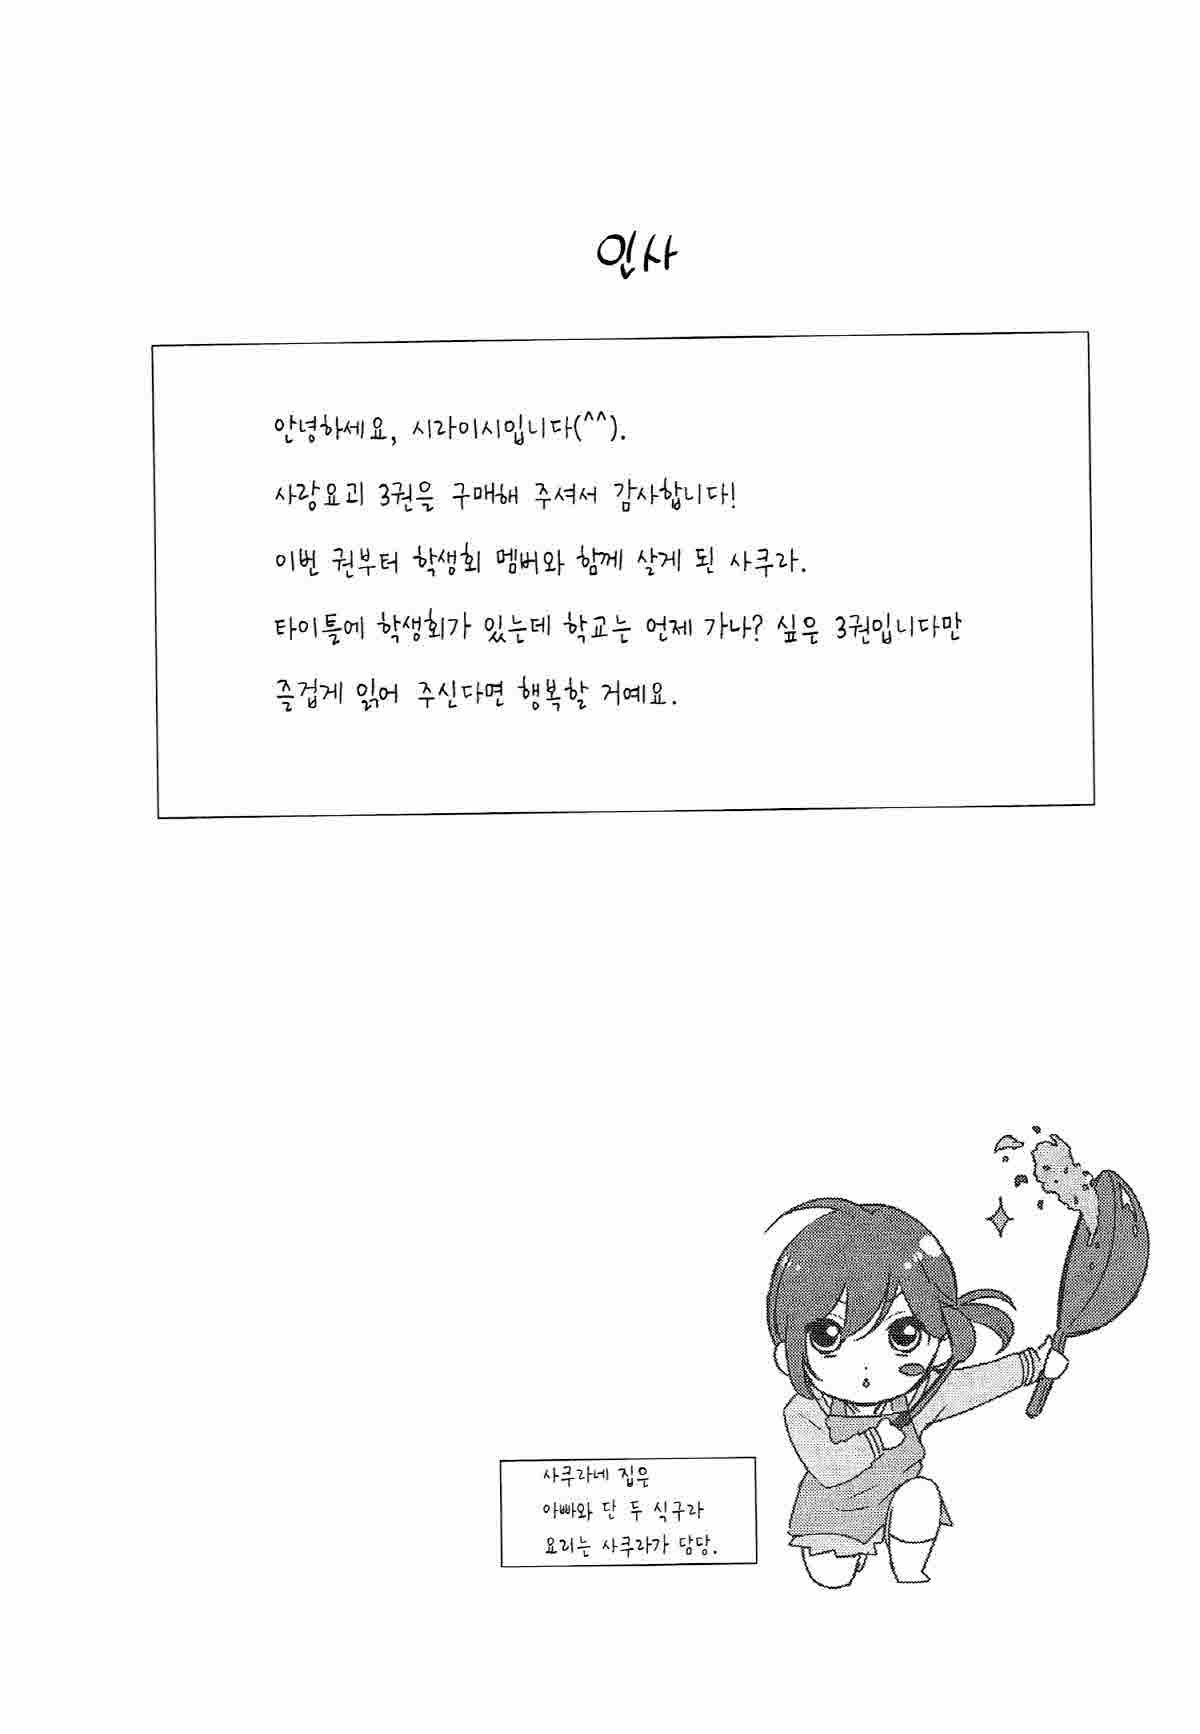 인사
안녕하세요, 시라이시입니다(^^).
사랑요괴 3권을 구매해 주셔서 감사합니다!
이번 권부터 학생회 멤버와 함께 살게 된 사쿠라.
타이틀에 학생회가 있는데 학교는 언제 가나? 싶은 3권입니다만
즐겁게 읽어 주신다면 행복할 거예요.
사쿠라네 집은
아빠와 단 두 식구라
요리는 사쿠라가 담당.